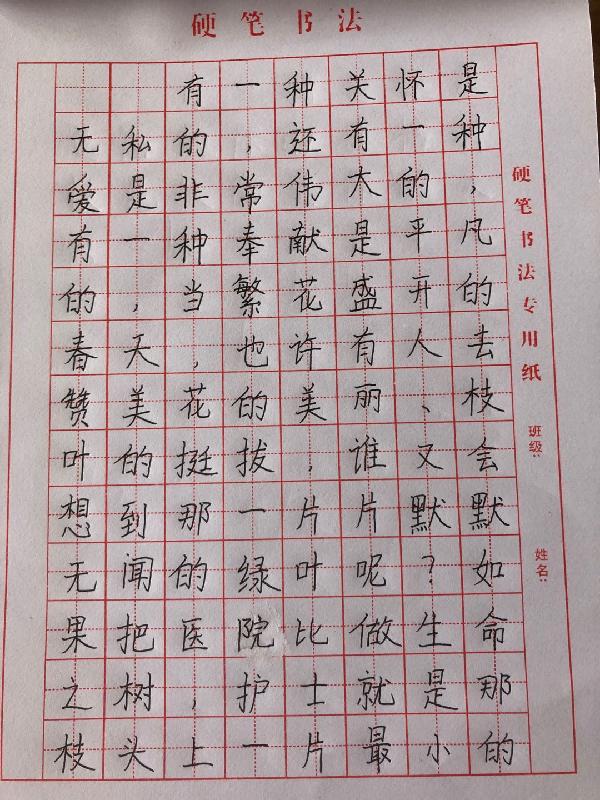 硬笔书法
有一种关怀是
无私的，还有一种
爱是非常伟大的，
有一种奉献是平凡
的，当繁花盛开的
春天，也许有人去
赞美花的美丽、枝
叶的挺拔，谁又会
想到那一片片默默
无闻的绿叶呢？如
果把医院比做生命
之树，护士就是那
枝头上一片最小的
硬笔书法专用纸
班级：
姓名：